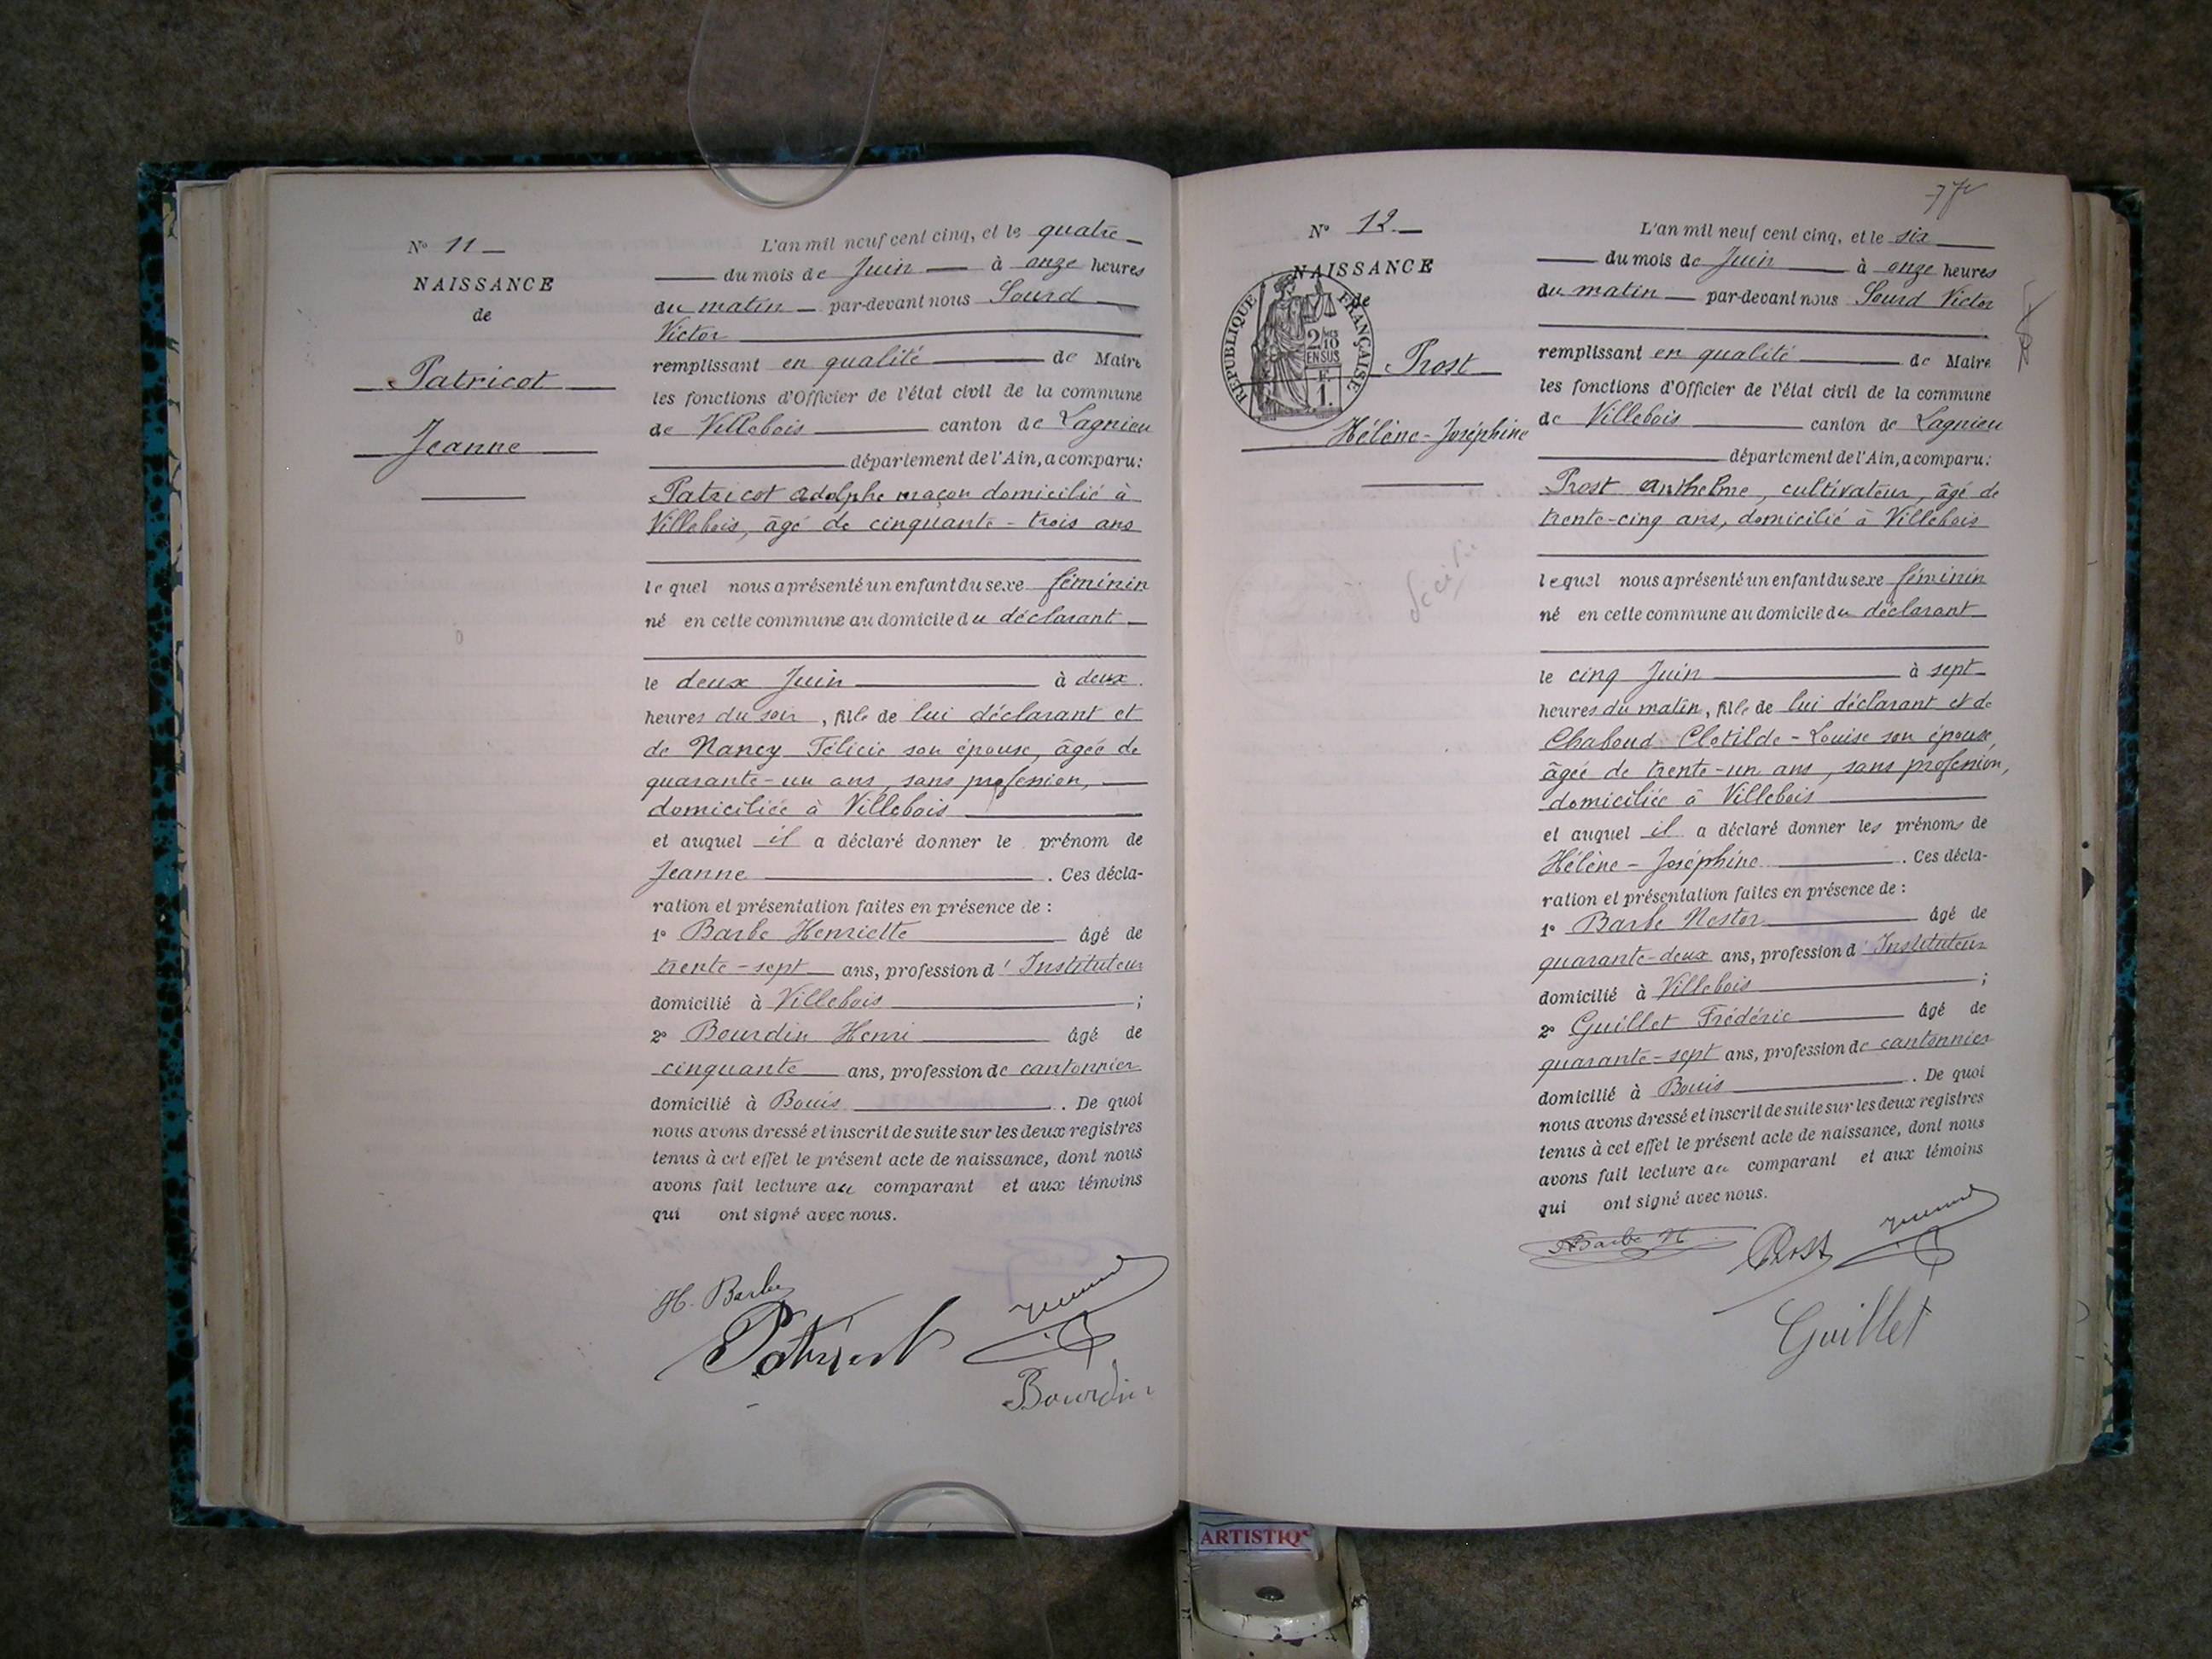 N° 11
NAISSANCE
de
Patricot
Jeanne
L'an mil neuf cent cinq, et le quatre
du mois de Juin à onze heures
du matin par-devant nous Sourd
Victor
remplissant en qualité de Maire
les fonctions d'Officier de l'état civil de la commune
de Villebois canton de Lagnieu
département de l'Ain, a comparu:
Patricot adolphe maçon domicilié à
Villebois, âgé de cinquante-trois ans
lequel nous a présenté un enfant du sexe féminin
né en cette commune au domicile du déclarant
le deux Juin à deux
heures du soir, fille de lui déclarant et
de Nancy Félicie son épouse, âgée de
quarante-un ans, sans profession,
domiciliée à Villebois
et auquel il a déclaré donner le prénom de
Jeanne. Ces décla-
ration et présentation faites en présence de :
1° Barbe Henriette âgé de
trente-sept ans, profession d'Instituteur
domicilié à Villebois ;
2° Bourdin Henri âgé de
cinquante ans, profession de cantonnier
domicilié à Bouis. De quoi
nous avons dressé et inscrit de suite sur les deux registres
tenus à cet effet le présent acte de naissance, dont nous
avons fait lecture au comparant et aux témoins
qui ont signé avec nous.
H. Barbe
Patricot
Bourdin
N° 12
NAISSANCE
de
RÉPUBLIQUE FRANÇAISE
2/10
EN SUS
F.
1.
Prost
Hélène-Joséphine
L'an mil neuf cent cinq, et le six
du mois de Juin à onze heures
du matin par-devant nous Sourd Victor
remplissant en qualité de Maire
les fonctions d'Officier de l'état civil de la commune
de Villebois canton de Lagnieu
département de l'Ain, a comparu:
Prost anthelme, cultivateur, âgé de
trente-cinq ans, domicilié à Villebois
lequel nous a présenté un enfant du sexe féminin
né en cette commune au domicile du déclarant
le cinq Juin à sept
heures du matin, fille de lui déclarant et de
Chaboud Clotilde-Louise son épouse,
âgée de trente-un ans, sans profession,
domiciliée à Villebois
et auquel il a déclaré donner les prénoms de
Hélène-Joséphine. Ces décla-
ration et présentation faites en présence de :
1° Barbe Nestor âgé de
quarante-deux ans, profession d'Instituteur
domicilié à Villebois ;
2° Guillet Frédéric âgé de
quarante-sept ans, profession de cantonnier
domicilié à Bouis. De quoi
nous avons dressé et inscrit de suite sur les deux registres
tenus à cet effet le présent acte de naissance, dont nous
avons fait lecture au comparant et aux témoins
qui ont signé avec nous.
Barbe N
Prost
Guillet
ARTISTIQ